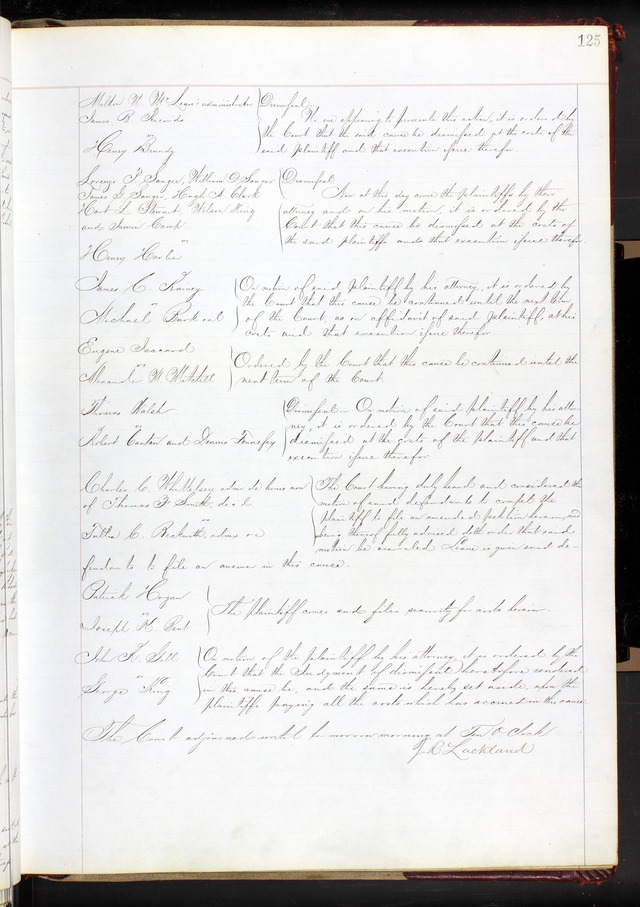 125
Milton N. Mc administrator Dismissal
James B. No one appearing to prosecute this action, it is ordered by
vs the Court that the said cause be dismissed at the costs of the
Henry Brundy said plaintiff and that execution issue therefor
Lorenzo P. Sanger, William D. Sanger Dismissal
James Y. Sanger, Hugh A. Clark Now at this day come the plaintiffs by their
Hart L. Stewart, Wilson King attorney and on his motion, it is ordered by the
and Camp Court that this cause be dismissed at the costs of
vs the said plaintiffs and that execution issue therefor
Henry
James C. On motion of said plaintiff by his attorney, it is ordered by
vs the Court that this cause be continued until the next term
Michael of the Court, as on affidavit of said plaintiff, at his
costs and that execution issue therefor
Eugene
vs Ordered by the Court that this cause be continued until the
Alexander W. Mitchell next term of the Court.
Thomas Walsh Dismissal – On motion of said plaintiff by his attor-
vs ney, it is ordered by the Court that this cause be
Robert and Dennis dismissed at the costs of the plaintiff and that
execution issue therefor
Charles C. Whittlesey admr de bonis non The Court having duly heard and considered the
of Thomas F. Smith, decd motion of said defendants to compel the
vs plaintiff to file an amended petition herein, and
C. Beckwith, admx &c being thereof fully advised doth order that said
motion be overruled Leave is given said de-
fendants to file an answer in this cause.
Patrick Hogan
vs The plaintiff comes and files security for costs herein.
Joseph H.
John K. Gill On motion of the plaintiff by his attorney, it is ordered by the
vs Court that the Judgment of dismissal heretofore rendered
George King in this cause be, and the same is hereby set aside, upon the
plaintiffs paying all the costs which has accrued in this cause
The Court adjourned until to morrow morning at Ten O Clock
J R Lackland